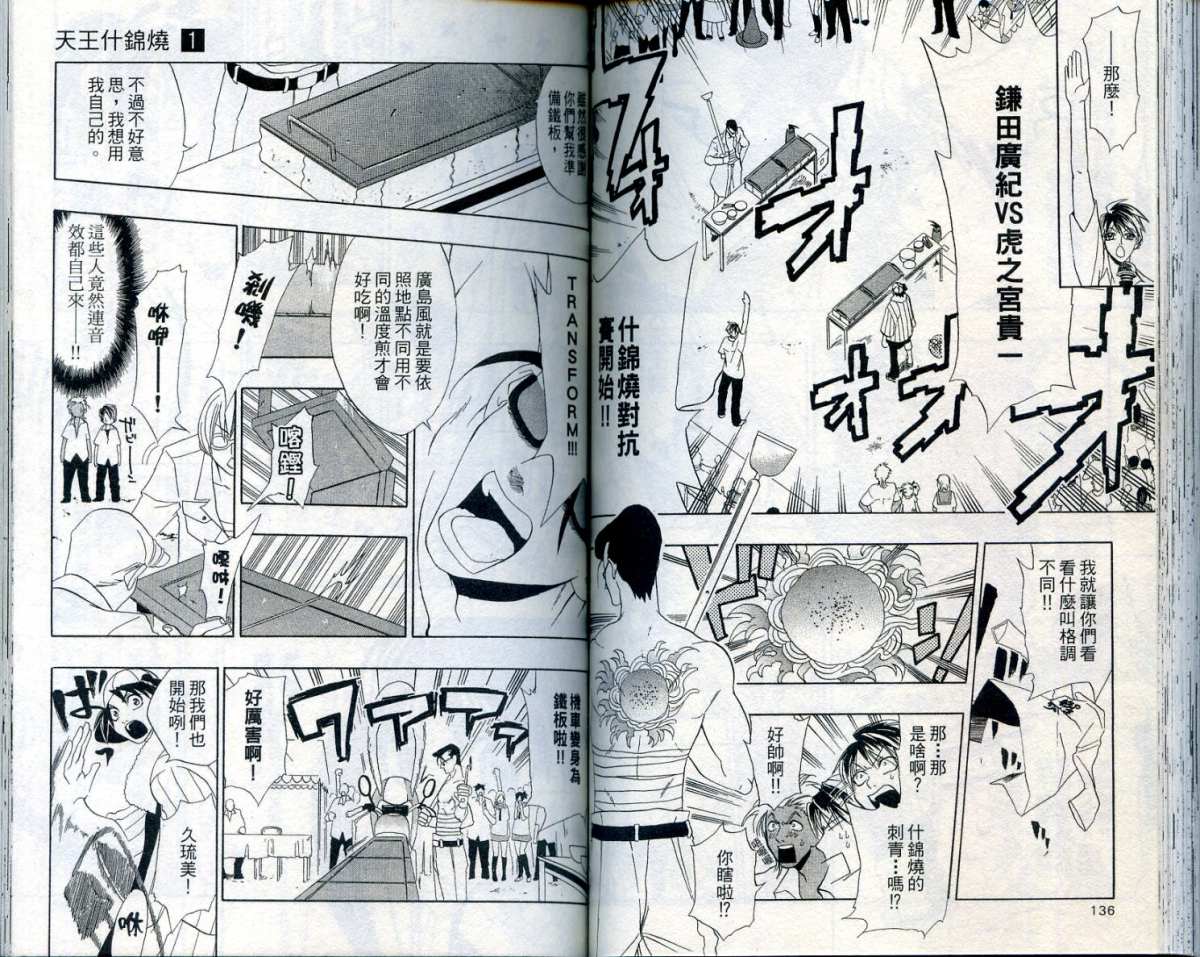 ——那麼！
鎌田廣紀VS虎之宮貴一
什錦燒對抗
賽開始!!
オオオオ
オオ
我就讓你們看
看什麼叫格調
不同!!
那…那
是啥啊？
好帥啊!!
什錦燒的
刺青…嗎!?
你瞎啦!?
136
天王什錦燒 1
雖然很感謝
你們幫我準
備鐵板，
不過不好意
思，我想用
我自己的。
TRANSFORM!!!
廣島風就是要依
照地點不同用不
同的溫度煎才會
好吃啊！
咻咿——！
這些人竟然連音
效都自己來——!!
喀鏗！
機車變身為
鐵板啦!!
ワァァァ
好厲害啊！
那我們也
開始咧！
ばっ
久琉美！
咻